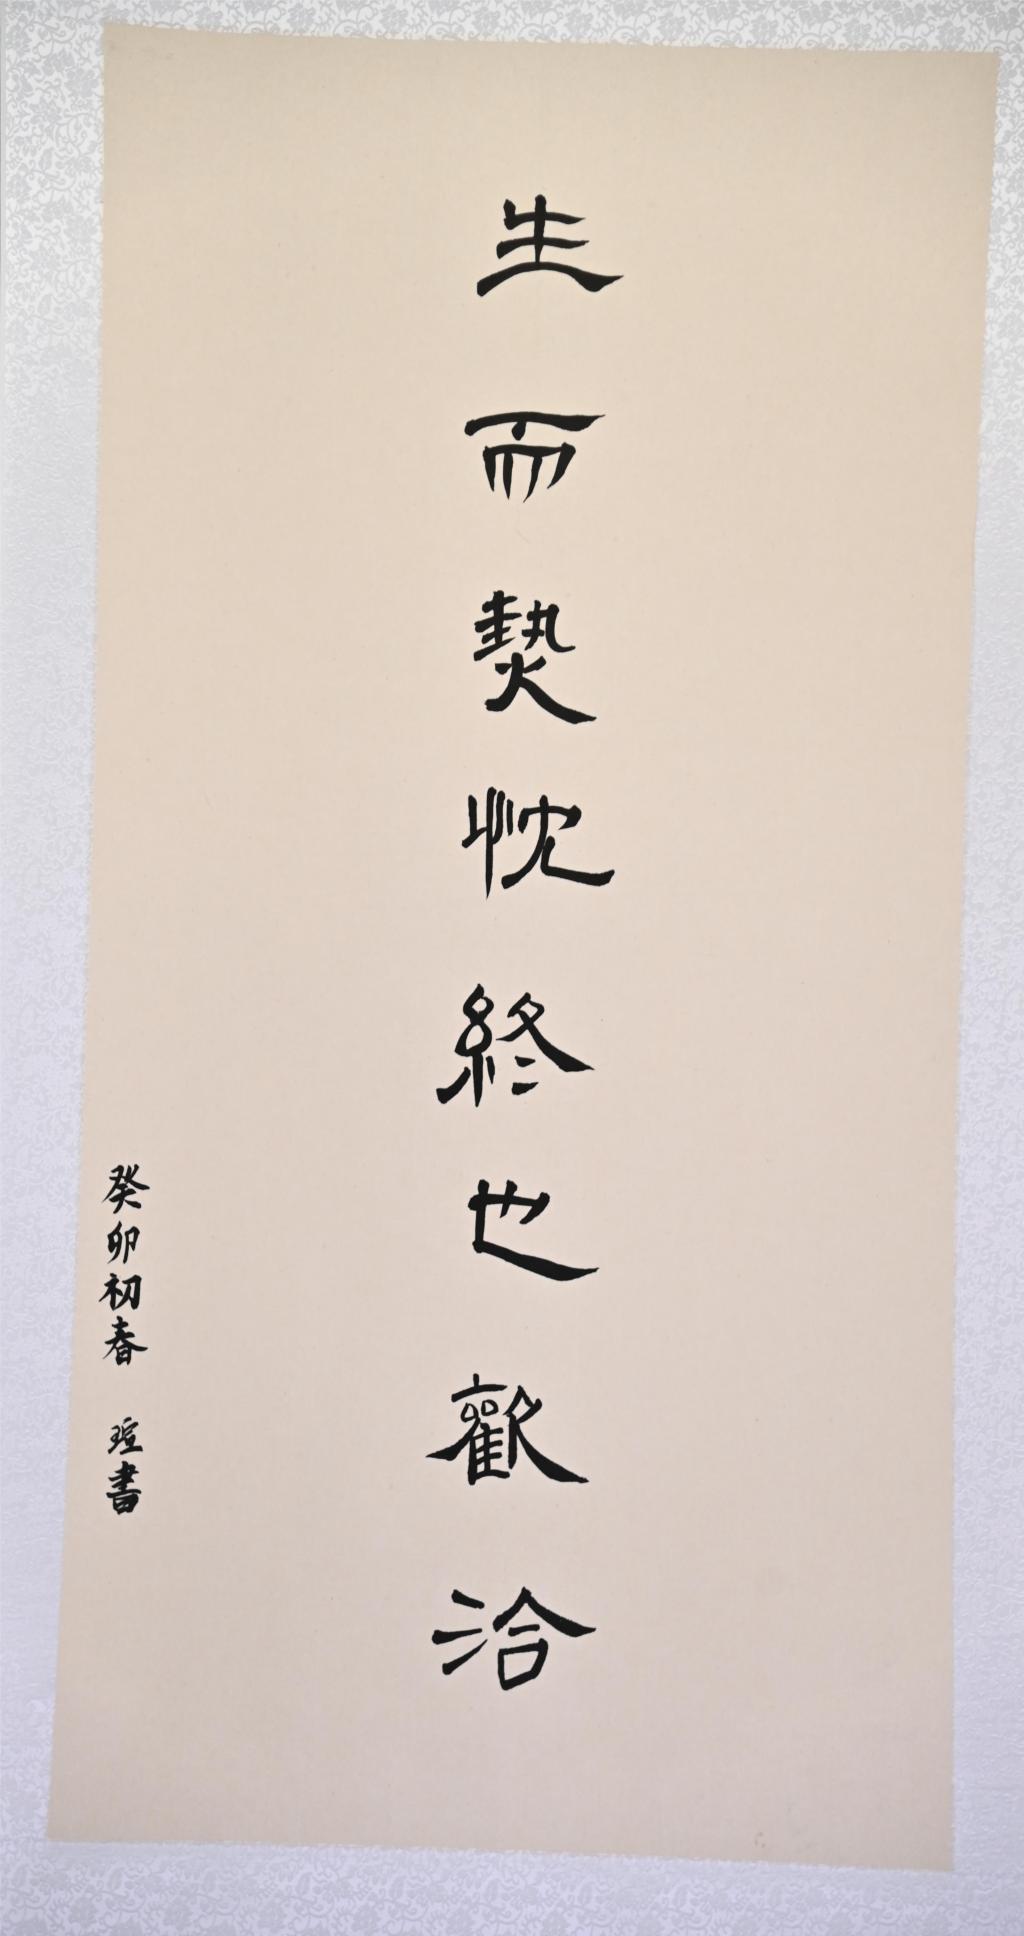 生而熱忱終也歡洽
癸卯初春 瑄書